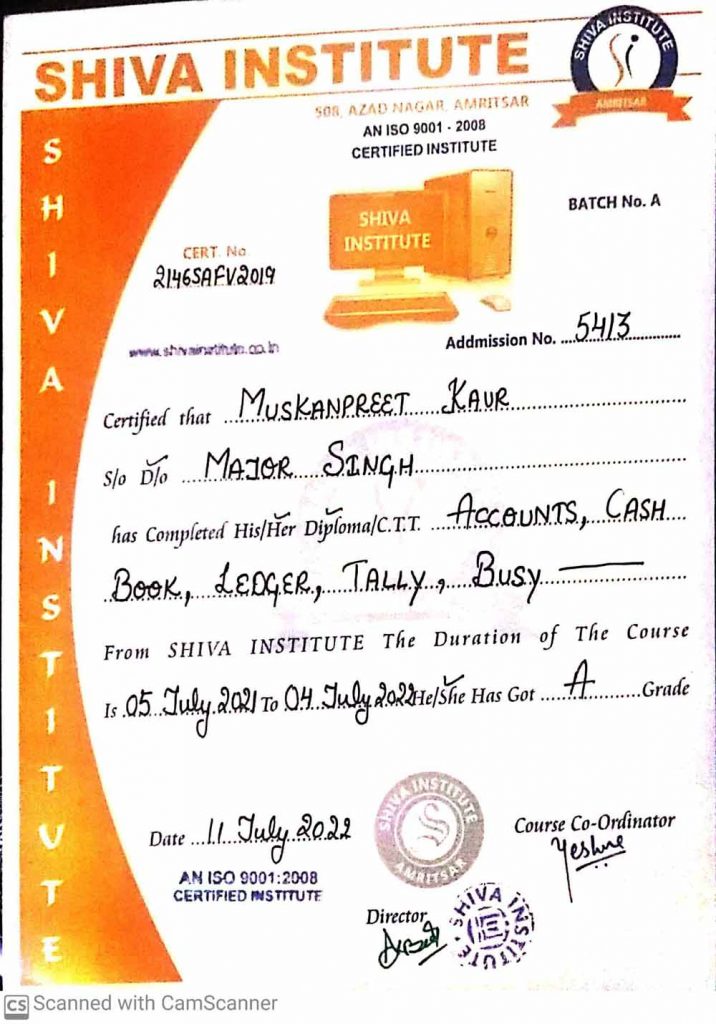 SHIVA INSTITUTE
SHIVA INSTITUTE
AMRITSAR
508, AZAD NAGAR, AMRITSAR
AN ISO 9001 - 2008
CERTIFIED INSTITUTE
SHIVA INSTITUTE
SHIVA
INSTITUTE
BATCH No. A
CERT. No.
2146SAFV2019
www.shivainstitute.co.in
Addmission No. 5413
Certified that MUSKANPREET KAUR
S/o D/o MAJOR SINGH
has Completed His/Her Diploma/C.T.T. ACCOUNTS, CASH
BOOK, LEDGER, TALLY, BUSY
From SHIVA INSTITUTE The Duration of The Course
Is 05 July 2021 To 04 July 2022 He/She Has Got A Grade
Date 11 July 2022
AN ISO 9001:2008
CERTIFIED INSTITUTE
SHIVA INSTITUTE
S
AMRITSAR
Course Co-Ordinator
Director
SHIVA INSTITUTE
CS Scanned with CamScanner